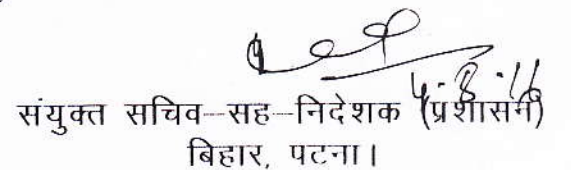 4.8.16
संयुक्त सचिव-सह-निदेशक (प्रशासन)
बिहार, पटना।